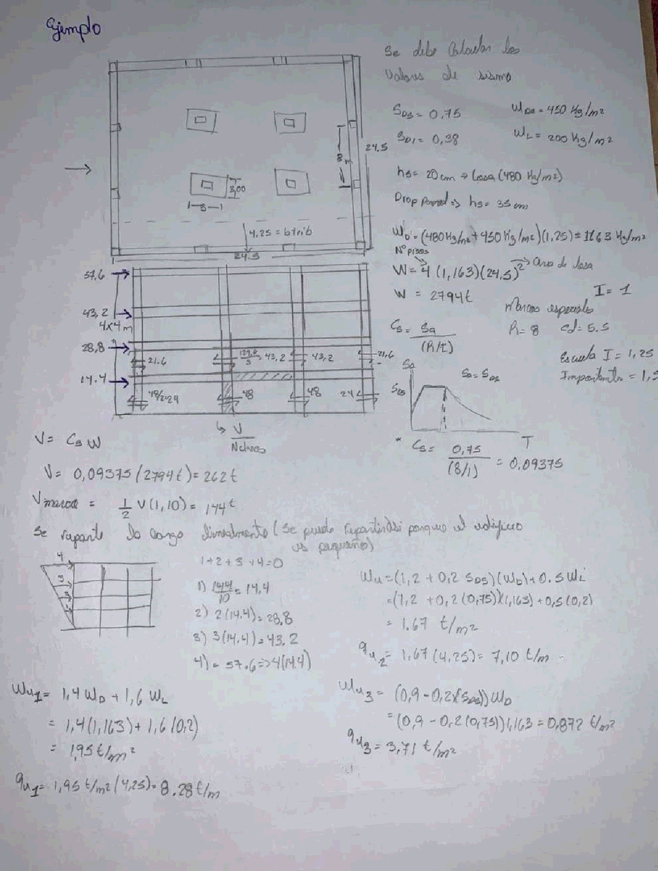 Ejemplo
Se debe calcular los
valores de sismo
S_DS = 0.75
W_DS = 450 Kg/m²
S_D1 = 0,38
W_L = 200 Kg/m²
hs = 20 cm → Losa (480 Kg/m²)
Drop Pannel → hs = 35 cm
W_D = (480 Kg/m² + 450 Kg/m²)(1,25) = 1163 Kg/m²
N° pisos
W = 4 (1,163)(24,5)² → Area de losa
W = 2794 t
I = 1
Marcos especiales
Cs = Sa/(R/I)
R = 8 cd = 5.5
Escuela I = 1,25
Importante = 1,5
Sa
S_DS
Sa = S_DS
T
Cs = 0,75/(8/1) = 0,09375
24.5
8
3,00
3
4.25 = btrib
24.5
57.6
43,2
4x4 m
28,8
14.4
21.6
43,2
43,2
21,6
48
48
24
V/Nclaros
V = Cs W
V = 0,09375 (2794 t) = 262 t
V marco = 1/2 V (1,10) = 144 t
Se reparte la carga linealmente (Se puede repartir así porque el edificio
es pequeño)
4
3
2
1
1+2+3+4=10
1) 144/10 = 14.4
2) 2(14.4) = 28,8
3) 3(14.4) = 43,2
4) = 57.6 => 4(14.4)
Wu = (1,2 + 0,2 S_DS)(W_D) + 0.5 W_L
= (1,2 + 0,2 (0,75))(1,163) + 0,5 (0,2)
= 1.67 t/m²
qu2 = 1,67 (4,25) = 7,10 t/m
Wu1 = 1,4 W_D + 1,6 W_L
= 1,4 (1,163) + 1,6 (0,2)
= 1,95 t/m²
qu1 = 1,95 t/m² (4,25) = 8.28 t/m
Wu3 = (0,9 - 0,2 (S_DS)) W_D
= (0,9 - 0,2 (0,75)) 1,163 = 0,872 t/m²
qu3 = 3,71 t/m²